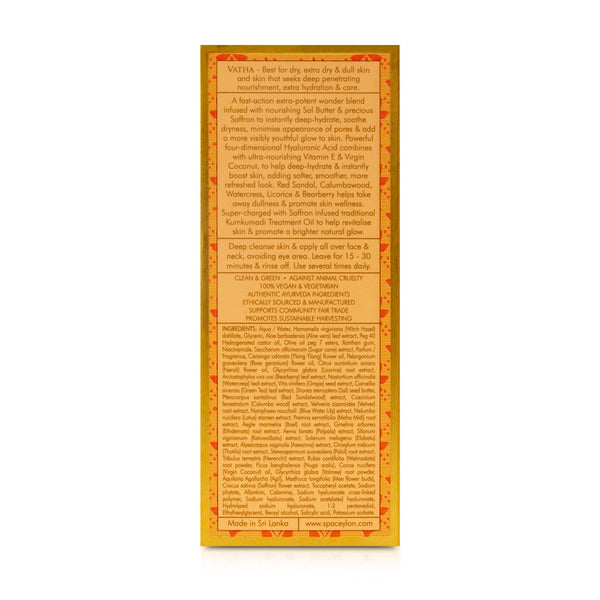 VATHA - Best for dry, extra dry & dull skin
and skin that seeks deep penetrating
nourishment, extra hydration & care.
A fast-action extra-potent wonder blend
infused with nourishing Sal Butter & precious
Saffron to instantly deep-hydrate, soothe
dryness, minimise appearance of pores & add
a more visibly youthful glow to skin. Powerful
four-dimensional Hyaluronic Acid combines
with ultra-nourishing Vitamin E & Virgin
Coconut, to help deep-hydrate & instantly
boost skin, adding softer, smoother, more
refreshed look. Red Sandal, Calumbawood,
Watercress, Licorice & Bearberry helps take
away dullness & promote skin wellness.
Super-charged with Saffron infused traditional
Kumkumadi Treatment Oil to help revitalise
skin & promote a brighter natural glow.
Deep cleanse skin & apply all over face &
neck, avoiding eye area. Leave for 15 - 30
minutes & rinse off. Use several times daily.
CLEAN & GREEN • AGAINST ANIMAL CRUELTY
100% VEGAN & VEGETARIAN
AUTHENTIC AYURVEDA INGREDIENTS
ETHICALLY SOURCED & MANUFACTURED
SUPPORTS COMMUNITY FAIR TRADE
PROMOTES SUSTAINABLE HARVESTING
INGREDIENTS: Aqua / Water, Hamamelis virginiana (Witch Hazel)
distillate, Glycerin, Aloe barbadensis (Aloe vera) leaf extract, Peg 40
Hydrogenated castor oil, Olive oil peg 7 esters, Xanthan gum,
Niacinamide, Saccharum officinarum (Sugar cane) extract, Parfum /
Fragrance, Cananga odorata (Ylang Ylang) flower oil, Pelargonium
graveolens (Rose geranium) flower oil, Citrus aurantium amara
(Neroli) flower oil, Glycyrrhiza glabra (Licorice) root extract,
Arctostaphylus uva ursi (Bearberry) leaf extract, Nasturtium officinalis
(Watercress) leaf extract, Vitis vinifera (Grape) seed extract, Camellia
sinensis (Green Tea) leaf extract, Shorea stenoptera (Sal) seed butter,
Pterocarpus santalinus (Red Sandalwood) extract, Coscinium
fenestratum (Calumba wood) extract, Vetiveria zizanoides (Vetiver)
root extract, Nymphaea nouchali (Blue Water Lily) extract, Nelumbo
nucifera (Lotus) stamen extract, Premna serratifolia (Mahra Midi) root
extract, Aegle marmelos (Bael) root extract, Gmelina arborea
(Ethdemata) root extract, Aerva lanata (Polpala) extract, Sifanum
virginianum (Katuwalbatu) extract, Solanum melogena (Elabatu)
extract, Alysicarpus vaginalis (Aswenna) extract, Desmodium triflorum
root extract, Stereospermum suaveolens (Palol) root extract,
Tribulus terrestris (Nerenchi) extract, Rubia cordifolia (Welmadata)
root powder, Ficus bengholensis (Nuga aralu), Cocoa nucifera
(Virgin Coconut) oil, Glycyrrhiza glabra (Valmee) root powder,
Aquilaria Agallocha (Agil), Madhuca longifolia (Mee flower buds),
Crocus sativus (Saffron) flower extract, Tocopheryl acetate, Sodium
phytate, Allantoin, Calamine, Sodium hyaluronate cross-linked
polymer, Sodium hyaluronate, Sodium acetylated hyaluronate,
Hydrolyzed sodium hyaluronate, 1-2 pentanediol,
Ethylhexylglycerol, Benzyl alcohol, Salicylic acid, Potassium sorbate.
Made in Sri Lanka
www.spaceylon.com